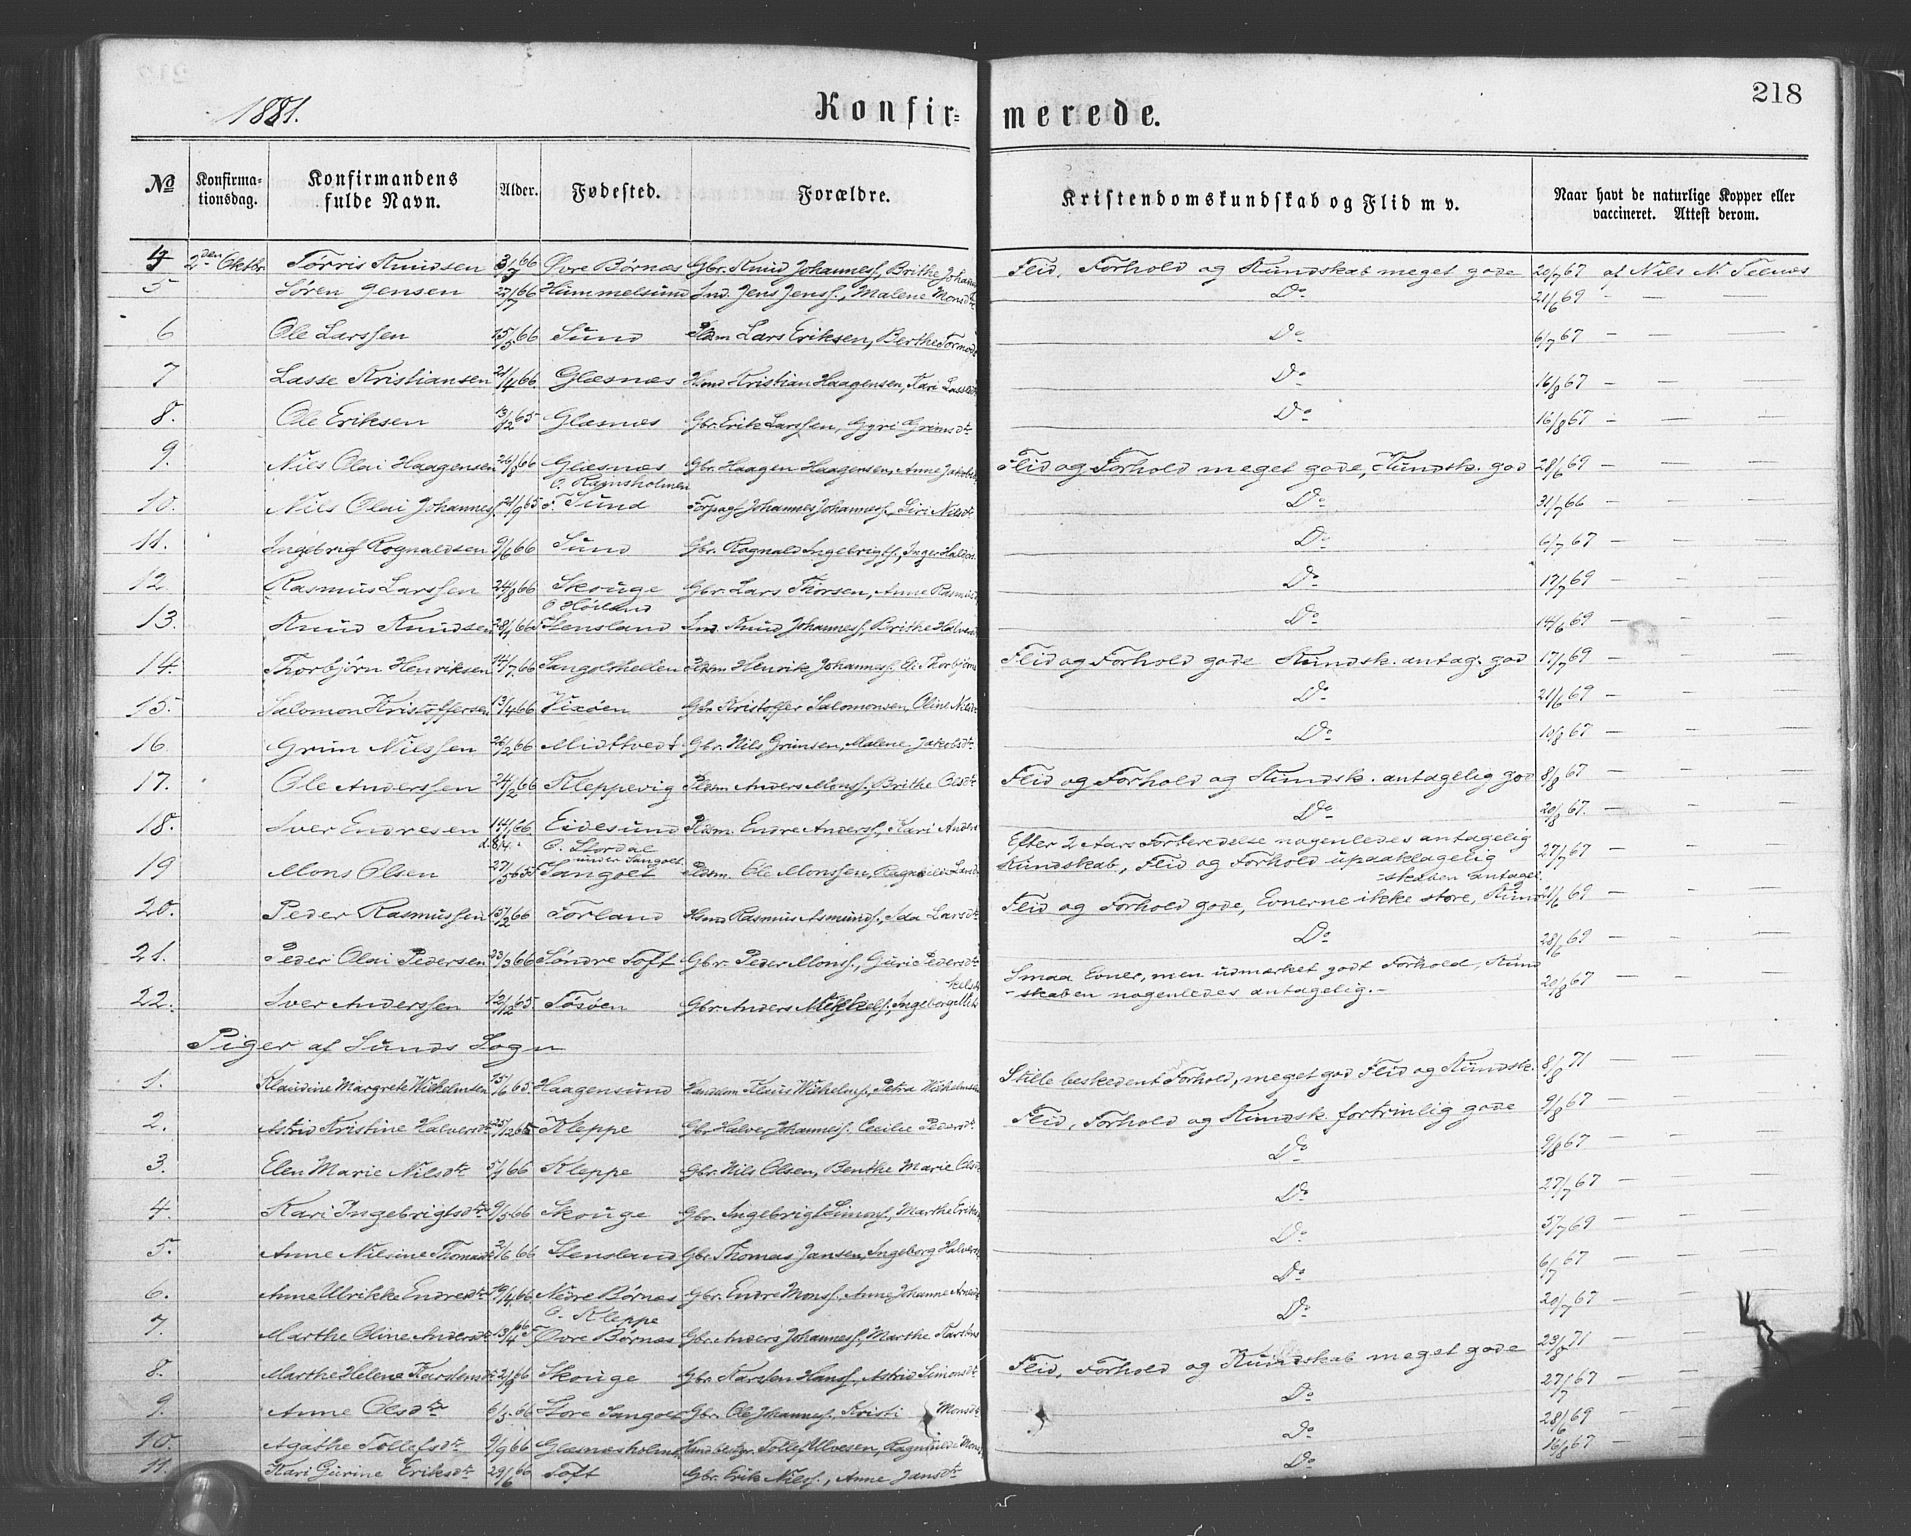 218
1881.
Konfir= merede.
No Konfirma-tionsdag. Konfirmandens fulde Navn. Alder. Fødested. Forældre. Kristendomskundskab og Flid m v. Naar havt de naturlige Kopper eller vaccineret. Attest derom.
4 2den Oktbr. Tørris Knudsen 3/7 66 Øvre Børnæs Gbr. Knud Johanness., Brithe Johann Flid, Forhold og Kundskab meget gode 20/7 67 af Nils N. Telnæs
5 Søren Jensen 27/7 66 Hummelsund Ind. Jens Jenss., Malene Monsdtr Do 21/6 69 — — —
6 Ole Larssen 15/5 66 Sund Pldsm Lars Eriksen, Berthe Tormodd Do 6/7 67 — — —
7 Lasse Kristiansen 21/4 66 Glæsnæs Hsmd Kristian Haagensen, Kari Lassed Do 16/8 67 — — —
8. Ole Eriksen 13/12 65 Glæsnæs Gbr. Erik Larssen, Gyri Grimsdtr Do 16/8 67 — — —
9. Nils Olai Haagensen 26/8 66 Glæsnæs Gbr. Haagen Haagensen, Anne Jakobsd Flid og Forhold meget gode, Kundsk. god 28/6 69 — — —
10. Nils Olai Johanness. 21/9 65 O. Ramsholmen F. Sund Forpagt Johannes Johanness., Siri Nilsdtr Do 31/7 66 — — —
11. Ingebrigt Rognaldsen 9/6 66 Sund Gbr. Rognald Ingebrigts., Inger Haldor Do 6/7 67 — — —
12. Rasmus Larssen 24/8 66 Skouge Gbr. Lars Thorsen, Anne Rasmusd Do 17/7 69 — — —
13. Knud Knudsen 28/4 66 O Høiland F Stensland Ind. Knud Johanness., Brithe Halvorsd Do 14/6 69 — — —
14. Thorbjørn Henriksen 14/7 66 Sangolthellen Pldsm Henrik Johanness. O. Thorbjørn Flid og Forhold gode Kundsk. antag. god 17/7 69 — — —
15. Salomon Kristoffersen 13/4 66 Vixøen Gbr. Kristoffer Salomonsen, Oline Nilsdtr Do 21/6 69 — — —
16. Grim Nilssen 26/2 66 Midttvedt Gbr. Nils Grimsen, Malene Jakobsdtr Do 10/8 67 — — —
17. Ole Anderssen 24/2 66 Kleppevig Pldsm Anders Monss., Brithe Olsdtr Flid og Forhold og Kundsk. antagelig god 8/8 67 — — —
18. Iver Endresen 14/1 66. Eidesund Pldsm. Endre Anderss., Kari Anders Do 20/8 67. — — —
19 Mons Olsen 27/5 65 O. Stordal under Sangolt F Sangolt Pldsm. Ole Monssen, Ragnilde Lars Efter 2 Aars Forberedelse nogenledes antagelig
Kundskab, Flid og Forhold upaaklagelig 27/7 67 — — —
20. Peder Rasmussen 15/2 66 Forland Hsmd Rasmus Asmunds., Ida Larsdtr Flid og Forhold gode, Evnerne ikke store, Kund -skaben antagel. 21/6 69 — — —
21. Peder Olai Pedersen 23/3 66 Søndre Toft Gbr. Peder Monss., Guri Pedersdtr Do 28/6 69 — — —
22. Iver Anderssen 12/12 65. Tøsøen Gbr. Anders Mikkels., Ingeborg Smaa Evner, men udmærket godt Forhold, Kund
-skaben nogenledes antagelig.- 20/8 67 — — —
Piger af Sunds Sogn
1. Klaudine Margrete Wilhelmsen 15/6 65. Haagensund Handlsm Klaus Wilhelms., Petra Wilhelmsen Stille beskedent Forhold, meget god Flid og Kundsk. 8/8 71 — — —
2. Astrid Kristine Halversdtr 25/12 65 Kleppe Gbr Halver Johanness. Cecilie Pedersdtr. Flid, Forhold og Kundsk. fortrinlig gode 9/8 67 — — —
3. Elen Marie Nilsdtr 5/1 66 Kleppe Gbr. Nils Olsen, Benthe Marie Olsd Do 9/8 67 — — —
4. Kari Ingebrigtsdtr 9/5 66 Skouge Gbr. Ingebrigt Simons., Marthe Eriks Do 27/7 67 — — —
5. Anne Nilsine Thomasdt 2/6 66 Stensland Gbr. Thomas Jansen, Ingeborg Halvers Do 5/7 69 — — —
6. Anne Ulrikke Endresdtr 19/4 66. Nedre Børnæs Gbr. Endre Monss. Anne Johanne Arnedt Do 6/7 67 — — —
7. Marthe Oline Andersdtr 13/4 66 O. Kleppe F Øvre Børnæs Gbr. Anders Johanness., Marthe Karstens Do 20/7 67 — — —
8. Marthe Helene Karstensdtr 2/9 66 Skouge Gbr. Karsten Hanss., Astrid Simonsdtr Flid, Forhold og Kundskab meget gode 23/8 71 — —
9. Anne Olsdtr 6/5. 66 Store Sangolt Gbr. Ole Johanness. Kristi Monsdtr Do 27/7 67 — —
10. Agathe Tollefsdtr 9/9 66 Glæsnæsholmen Handbestyr. Tollef Ulvesen, Ragnhilde Mons Do 28/6 69 —
11. Kari Gurine Eriksdtr 29/6 66 Toft Gbr. Erik Nilss., Anne Jansdtr Do 16/8 67 —